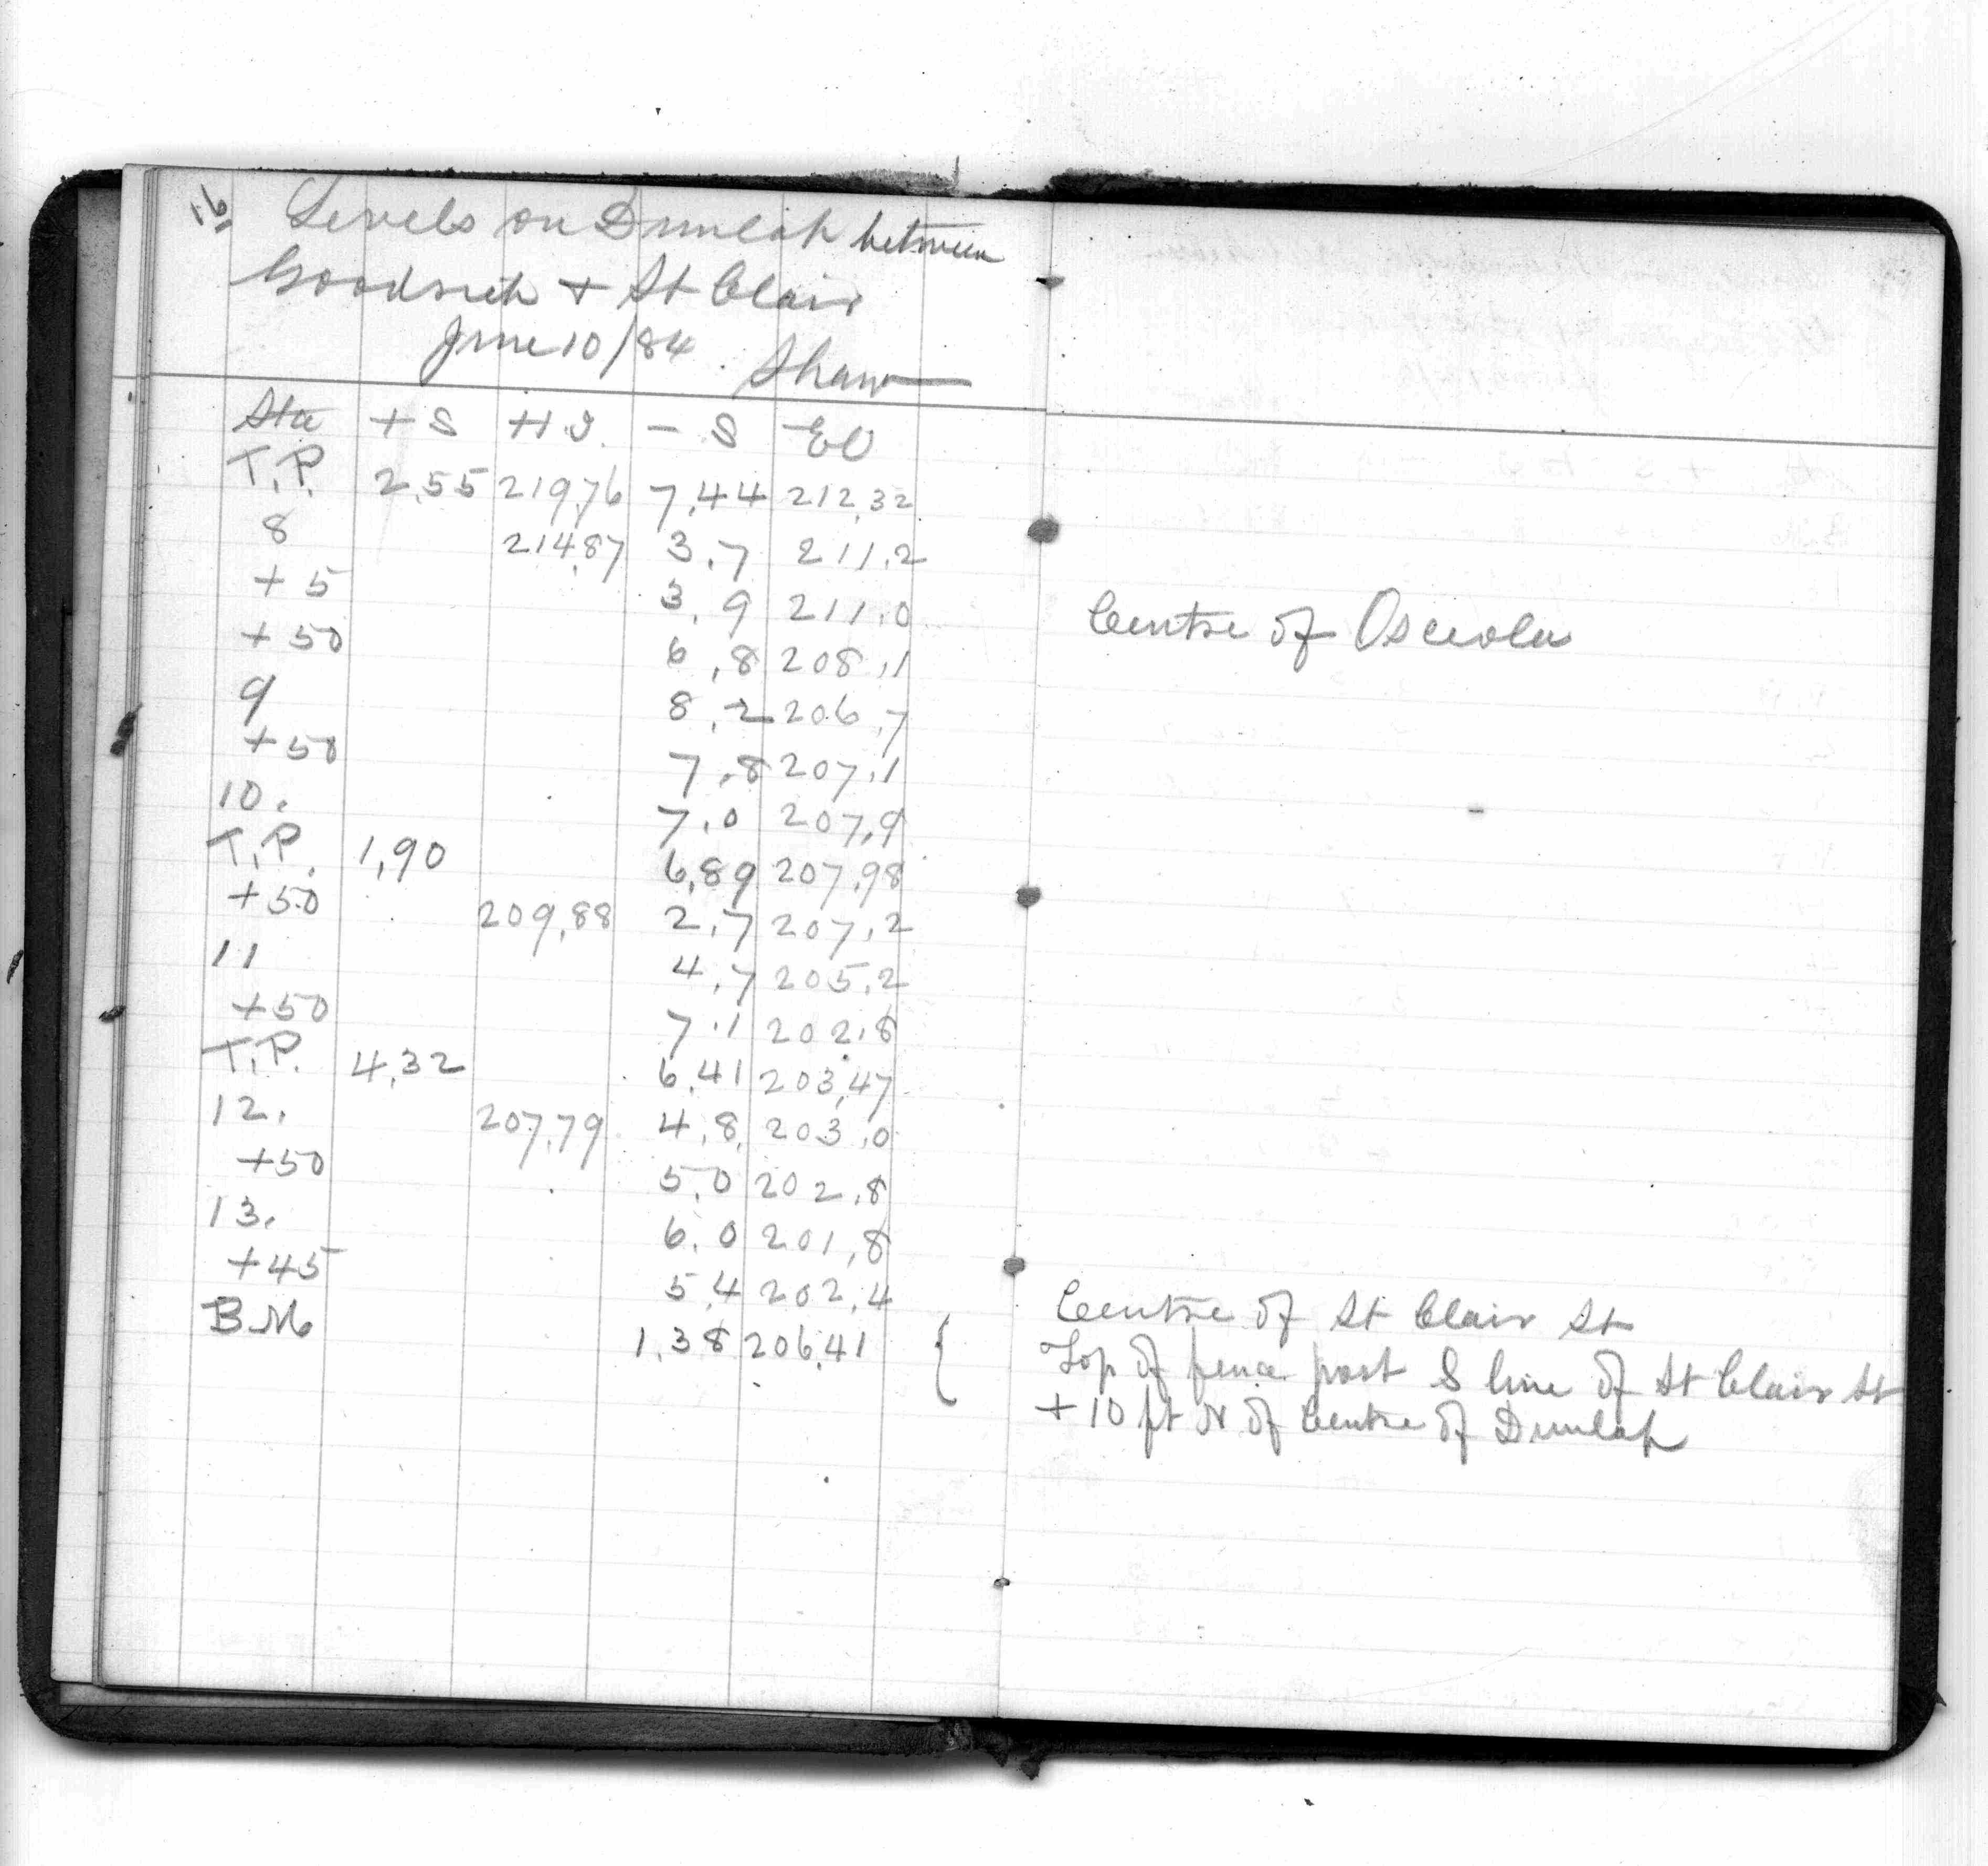 16
Levels on Dunlap between
Goodrich + St Clair
June 10/84 Shaw
Sta + S H.I. - S El
T.P. 2.55 219.76 7.44 212.32
8 214.87 3.7 211.2
+5 3.9 211.0 Centre of Osceola
+50 6.8 208.1
9 8.2 206.7
+50 7.8 207.1
10. 7.0 207.9
T.P. 1.90 6.89 207.98
+50 209.88 2.7 207.2
11 4.7 205.2
+50 7.1 202.8
T.P. 4.32 6.41 203.47
12. 207.79 4.8 203.0
+50 5.0 202.8
13. 6.0 201.8
+45 5.4 202.4 Centre of St Clair St
BM 1.38 206.41 { Top of fence post S line of St Clair St
+ 10 ft W of Centre of Dunlap